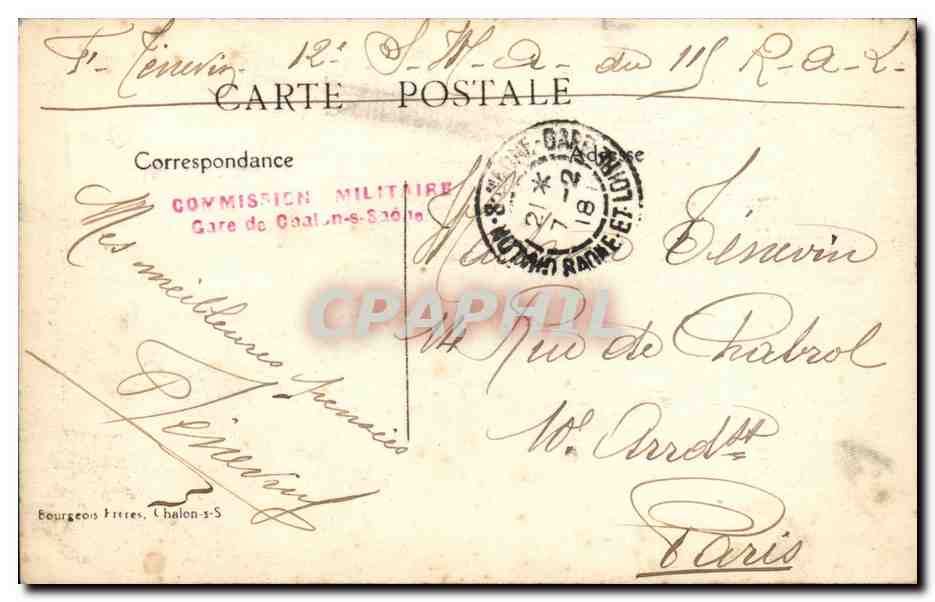 Ft Ténevin 12e S. M. A. du 115 R. A. L.
CARTE POSTALE
Correspondance
Adresse
COMMISSION MILITAIRE
Gare de Chalon-s-Saône
21 * 7 -2 18
SAONE-ET-LOIRE
Mes meilleures pensées
Ténevin
Madame Ténevin
14 Rue de Chabrol
10e Arrdt
Paris
Bourgeois Frères, Chalon-s-S
CPAPHIL